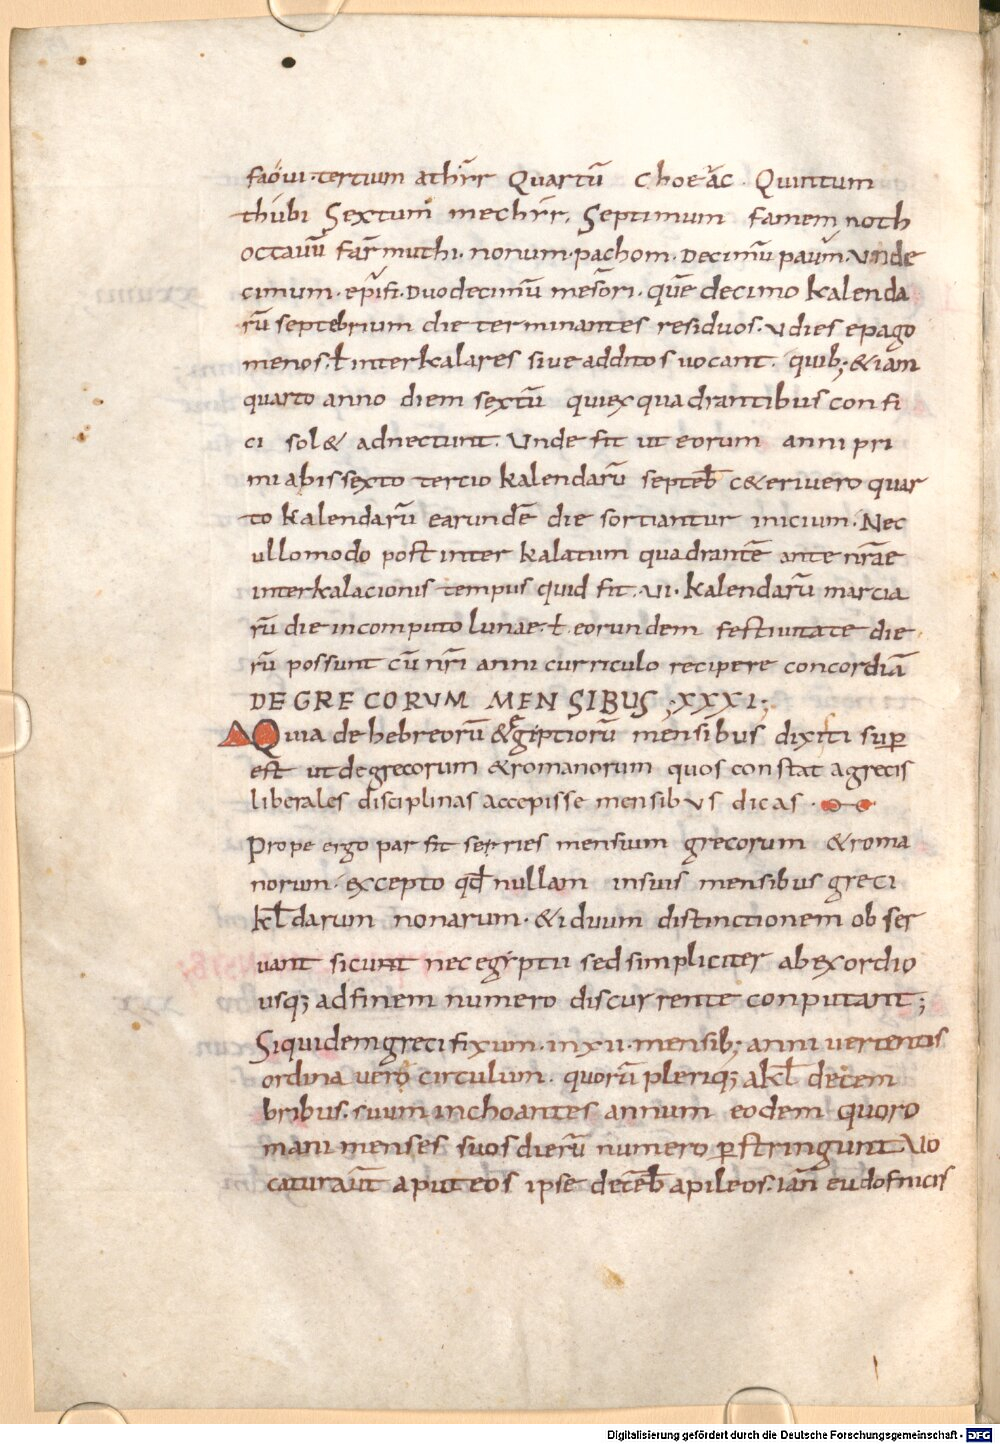 faovi·tertium athyr Quartū choeac· Quintum
thubi Sextum mechyr, Septimum famem noth
octauū farmuthi. nonum·pachom. Decimū pauni. Vnde
cimum· epifi. Duodecimū mesori· quē decimo kalenda
rū septebrium die terminantes residuos. v dies epago
menos. ł interkalares siue additos uocant. quib; & iam
quarto anno diem sextū qui ex quadrantibus confi
ci sol& adnectunt. Vnde fit ut eorum anni pri
mi a bissexto tercio kalendarū septeb̄ c&eri uero quar
to kalendarū earundē die sortiantur inicium. Nec
ullomodo post inter kalatum quadrantē ante nr̄ae
interkalacionis tempus quid fit. vi. kalendarū marcia
rū die in computo lunae. ł. eorundem festiuitate die
rū possunt cū nr̄i anni curriculo recipere concordiā
DE GRECORUM MENSIBUS ;XXXI;
Quia de hebreorū & egiptiorū mensibus dixiti sup̄
est ut de grecorum & romanorum quos constat a grecis
liberales disciplinas accepisse mensibus dicas ·
Prope ergo par fit serries mensium grecorum & roma
norum· excepto qđ nullam in suis mensibus greci
kl̄darum nonarum· & iduum distinctionem obser
uant sicunt nec egyptii sed simpliciter ab exordio
usq; ad finem numero discurrente conputant;
Siquidem greci fixum·in xii·mensib; anni uertentis
ordina uero circulum· quorū pleriq; a kl̄ decem
bribus. suum inchoantes annum eodem quo ro
mani menses suos dierū numero p̄stringunt. Vo
catur aūt aput eos ipse deceb̄ apileos. ian̄ eudofnicis
Digitalisierung gefördert durch die Deutsche Forschungsgemeinschaft - DFG